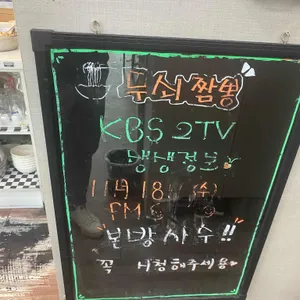 무쇠짬뽕
KBS 2TV
생생정보
11月 18日 (수)
PM
본방사수!!
꼭 시청해주세용